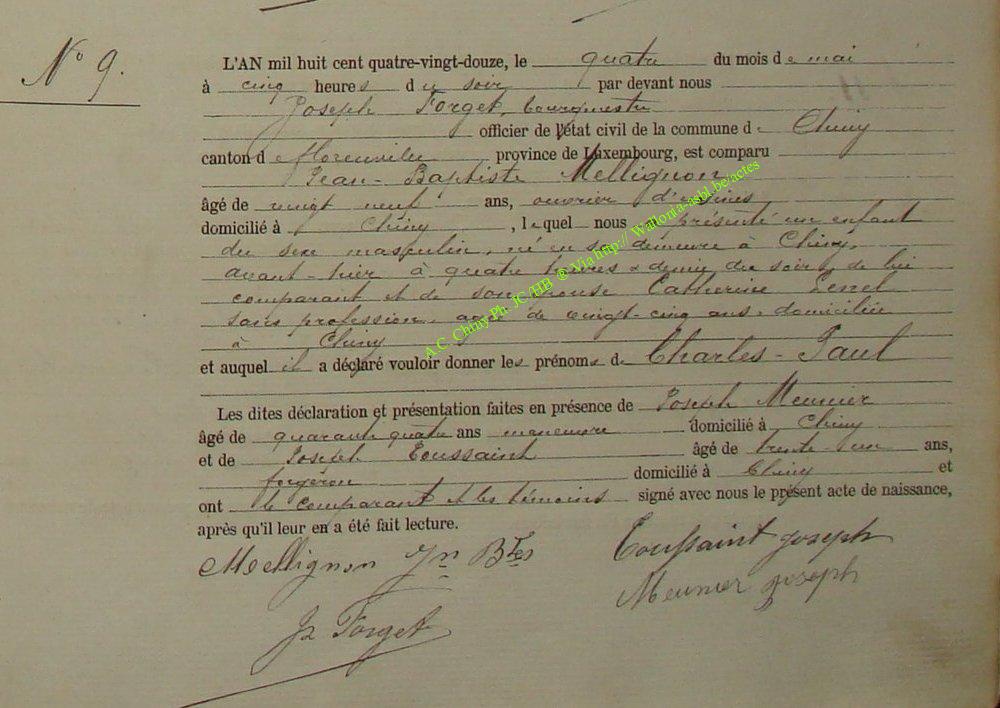 N° 9.
L'AN mil huit cent quatre-vingt-douze, le quatre du mois de mai
à cinq heures du soir par devant nous
Joseph Forget, bourgmestre
officier de l'état civil de la commune de Chiny
canton de florenville province de Luxembourg, est comparu
Jean-Baptiste Mellignon,
âgé de vingt neuf ans, ouvrier d'usines
domicilié à Chiny, lequel nous a présenté un enfant
du sexe masculin, né en sa demeure à Chiny,
avant-hier à quatre heures & demie du soir, de lui
comparant et de son épouse Catherine
sans profession, agée de vingt-cinq ans, domiciliée
à Chiny
et auquel il a déclaré vouloir donner les prénoms de Charles-Paul
Les dites déclaration et présentation faites en présence de Joseph Meunier
âgé de quarante quatre ans manœuvre domicilié à Chiny
et de Joseph Toussaint âgé de trente un ans,
forgeron domicilié à Chiny et
ont le comparant et les témoins signé avec nous le présent acte de naissance,
après qu'il leur en a été fait lecture.
Mellignon Jn Btes Toussaint joseph
Meunier joseph
Js Forget
A.C. Chiny Ph. JC/HB @ Via http:// Wallonia-asbl.be/actes